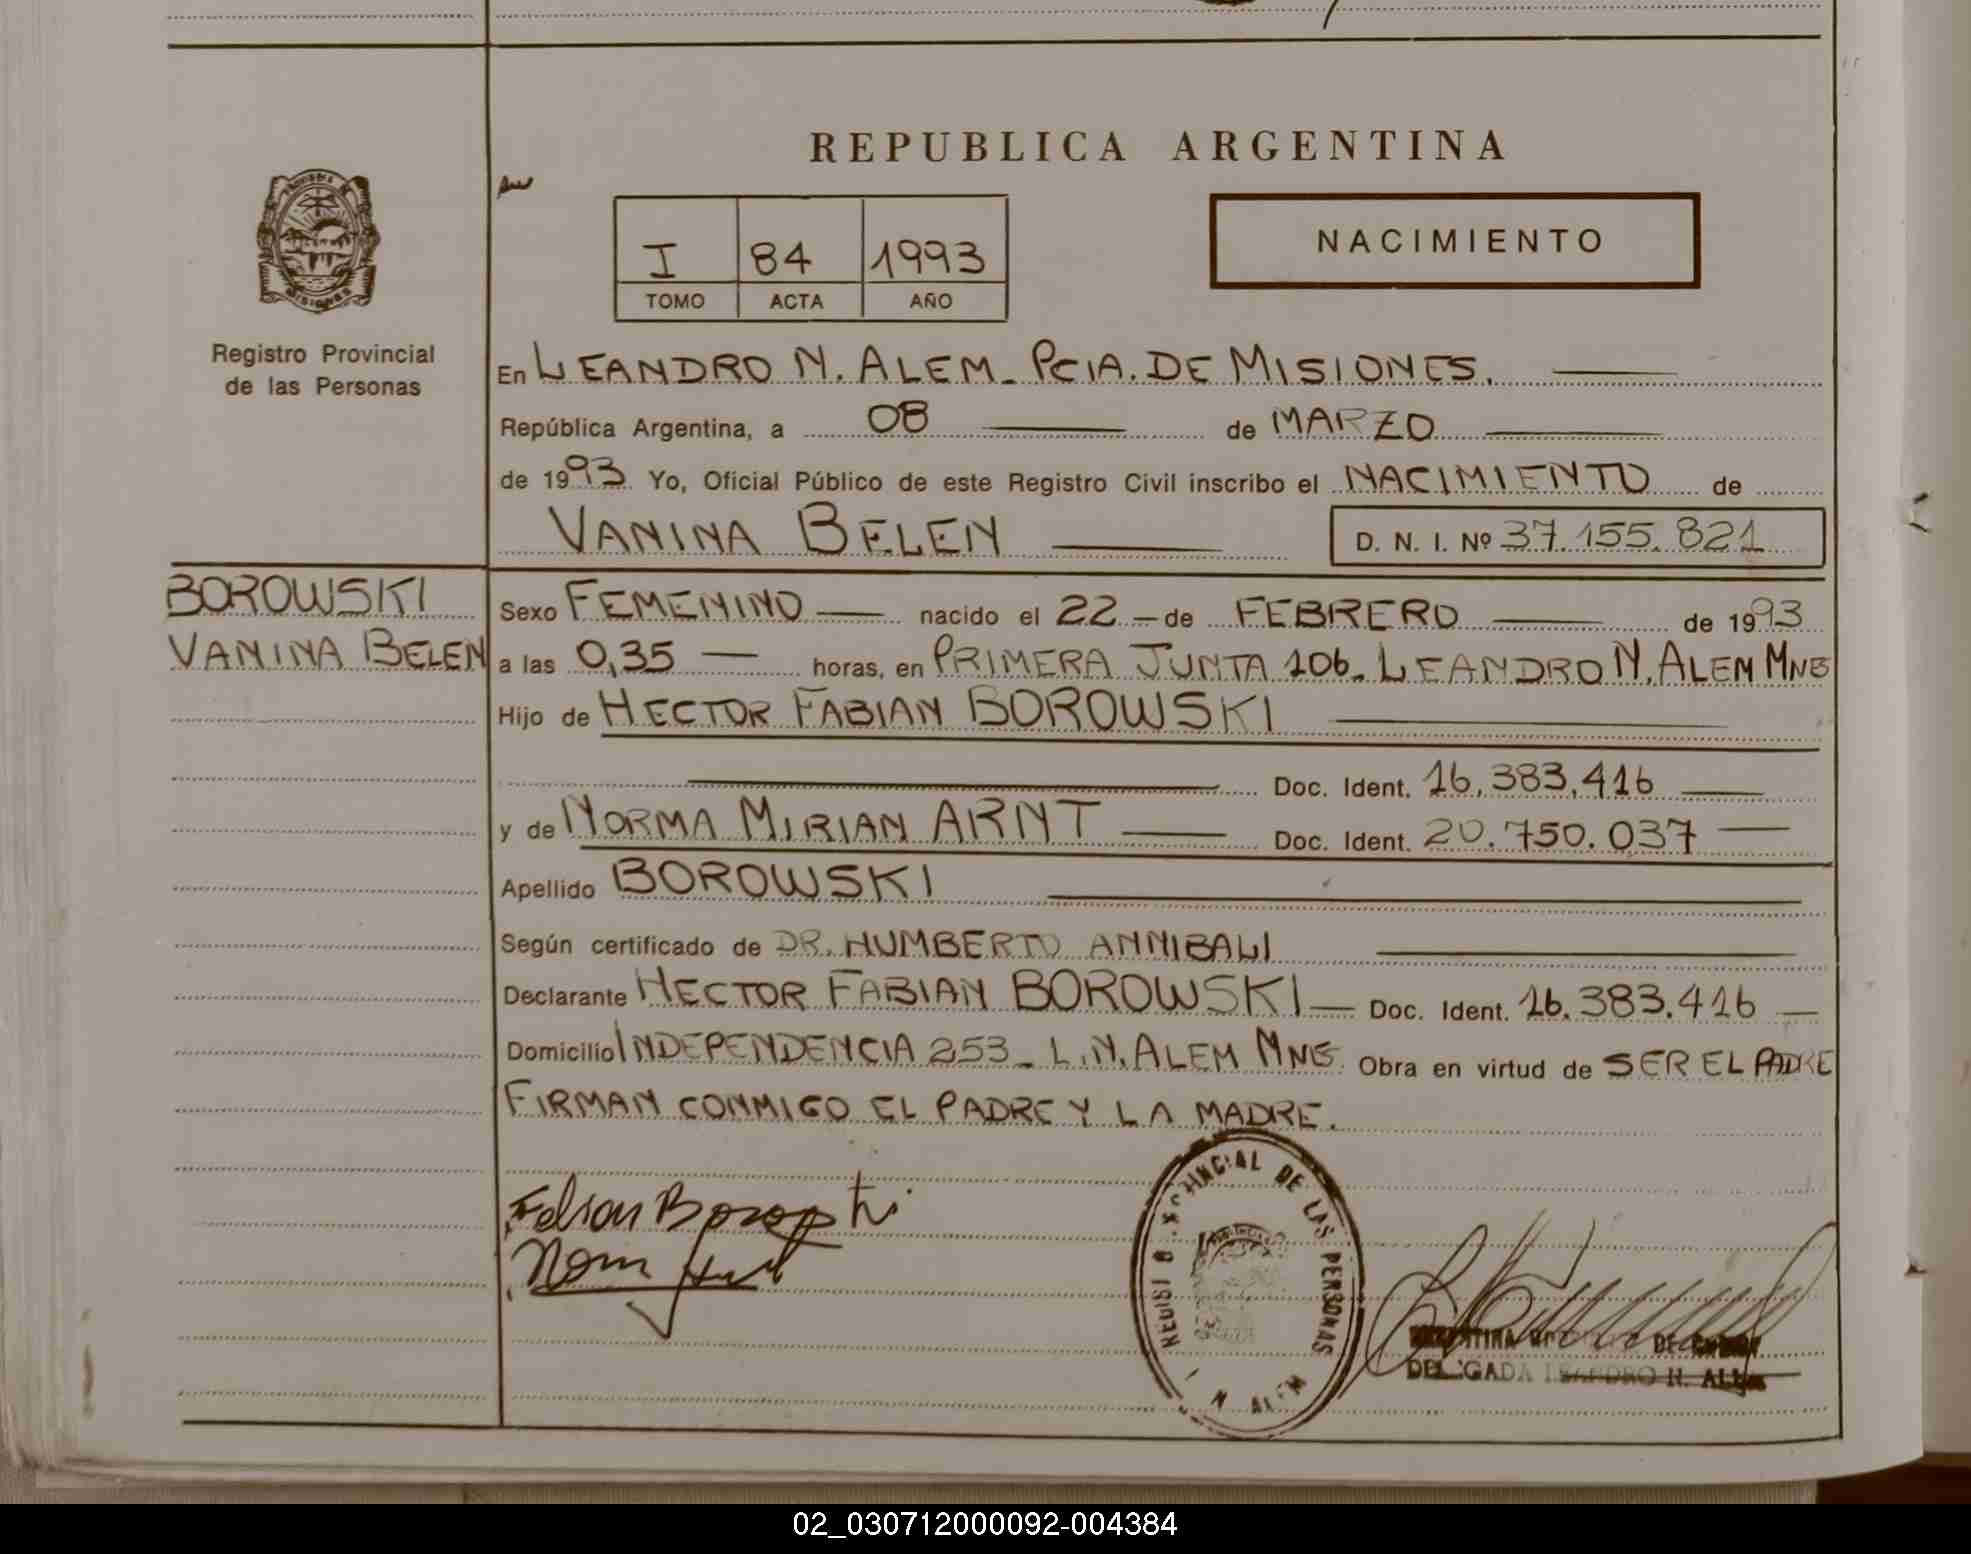 REPUBLICA ARGENTINA
I 84 1993
TOMO ACTA AÑO
NACIMIENTO
MISIONES
Registro Provincial
de las Personas
En LEANDRO N. ALEM - PCIA. DE MISIONES.
República Argentina, a 08 de MARZO
de 1993 Yo, Oficial Público de este Registro Civil inscribo el NACIMIENTO de
VANINA BELEN D. N. I. Nº 37.155.821
BOROWSKI
VANINA BELEN
Sexo FEMENINO nacido el 22 - de FEBRERO de 1993
a las 0,35 horas, en PRIMERA JUNTA 106 - LEANDRO N. ALEM MNES
Hijo de HECTOR FABIAN BOROWSKI
Doc. Ident. 16.383.416
y de NORMA MIRIAN ARNT Doc. Ident. 20.750.037
Apellido BOROWSKI
Según certificado de DR. HUMBERTO ANNIBALI
Declarante HECTOR FABIAN BOROWSKI Doc. Ident. 16.383.416
Domicilio INDEPENDENCIA 253 - L.N. ALEM MNES Obra en virtud de SER EL PADRE
FIRMAN CONMIGO EL PADRE Y LA MADRE.
PROVINCIAL DE LAS PERSONAS
DELEGADA LEANDRO N. ALEM
02_030712000092-004384